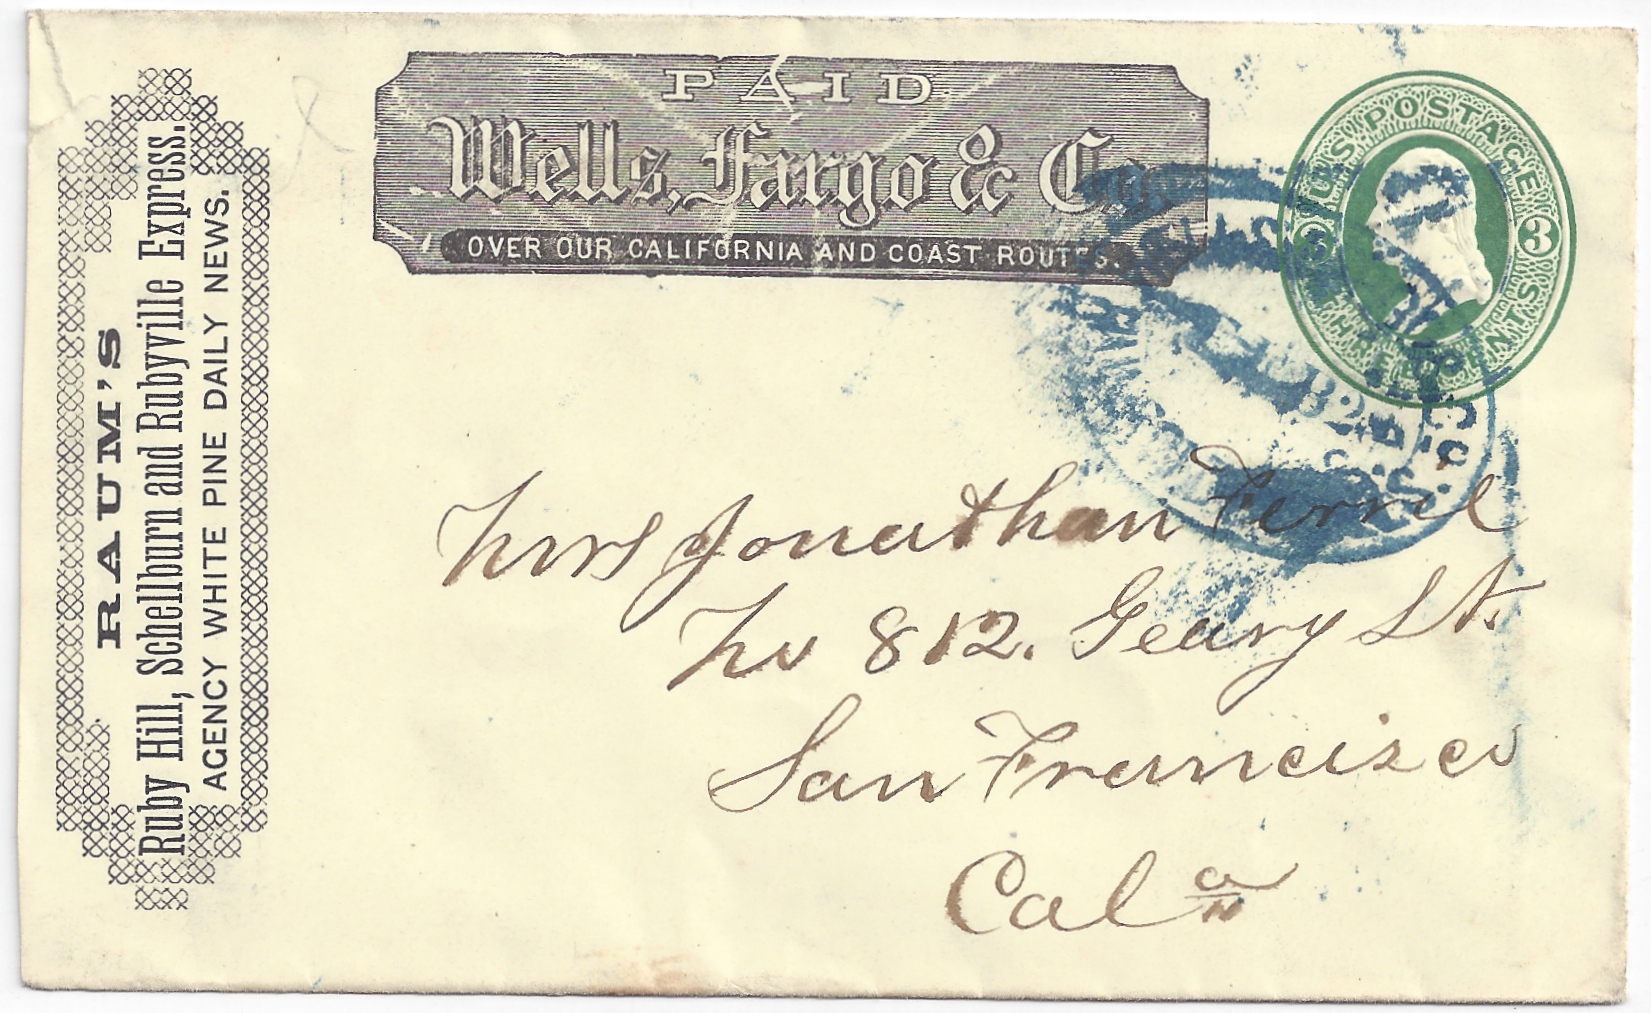 RAUM'S
Ruby Hill, Schellburn and Rubyville Express.
AGENCY WHITE PINE DAILY NEWS.
PAID
Wells, Fargo & Co.
OVER OUR CALIFORNIA AND COAST ROUTES.
U.S. POSTAGE
3 3
THREE CENTS
Mrs Jonathan Ferrel
No 812. Geary St.
San Francisco
Cala